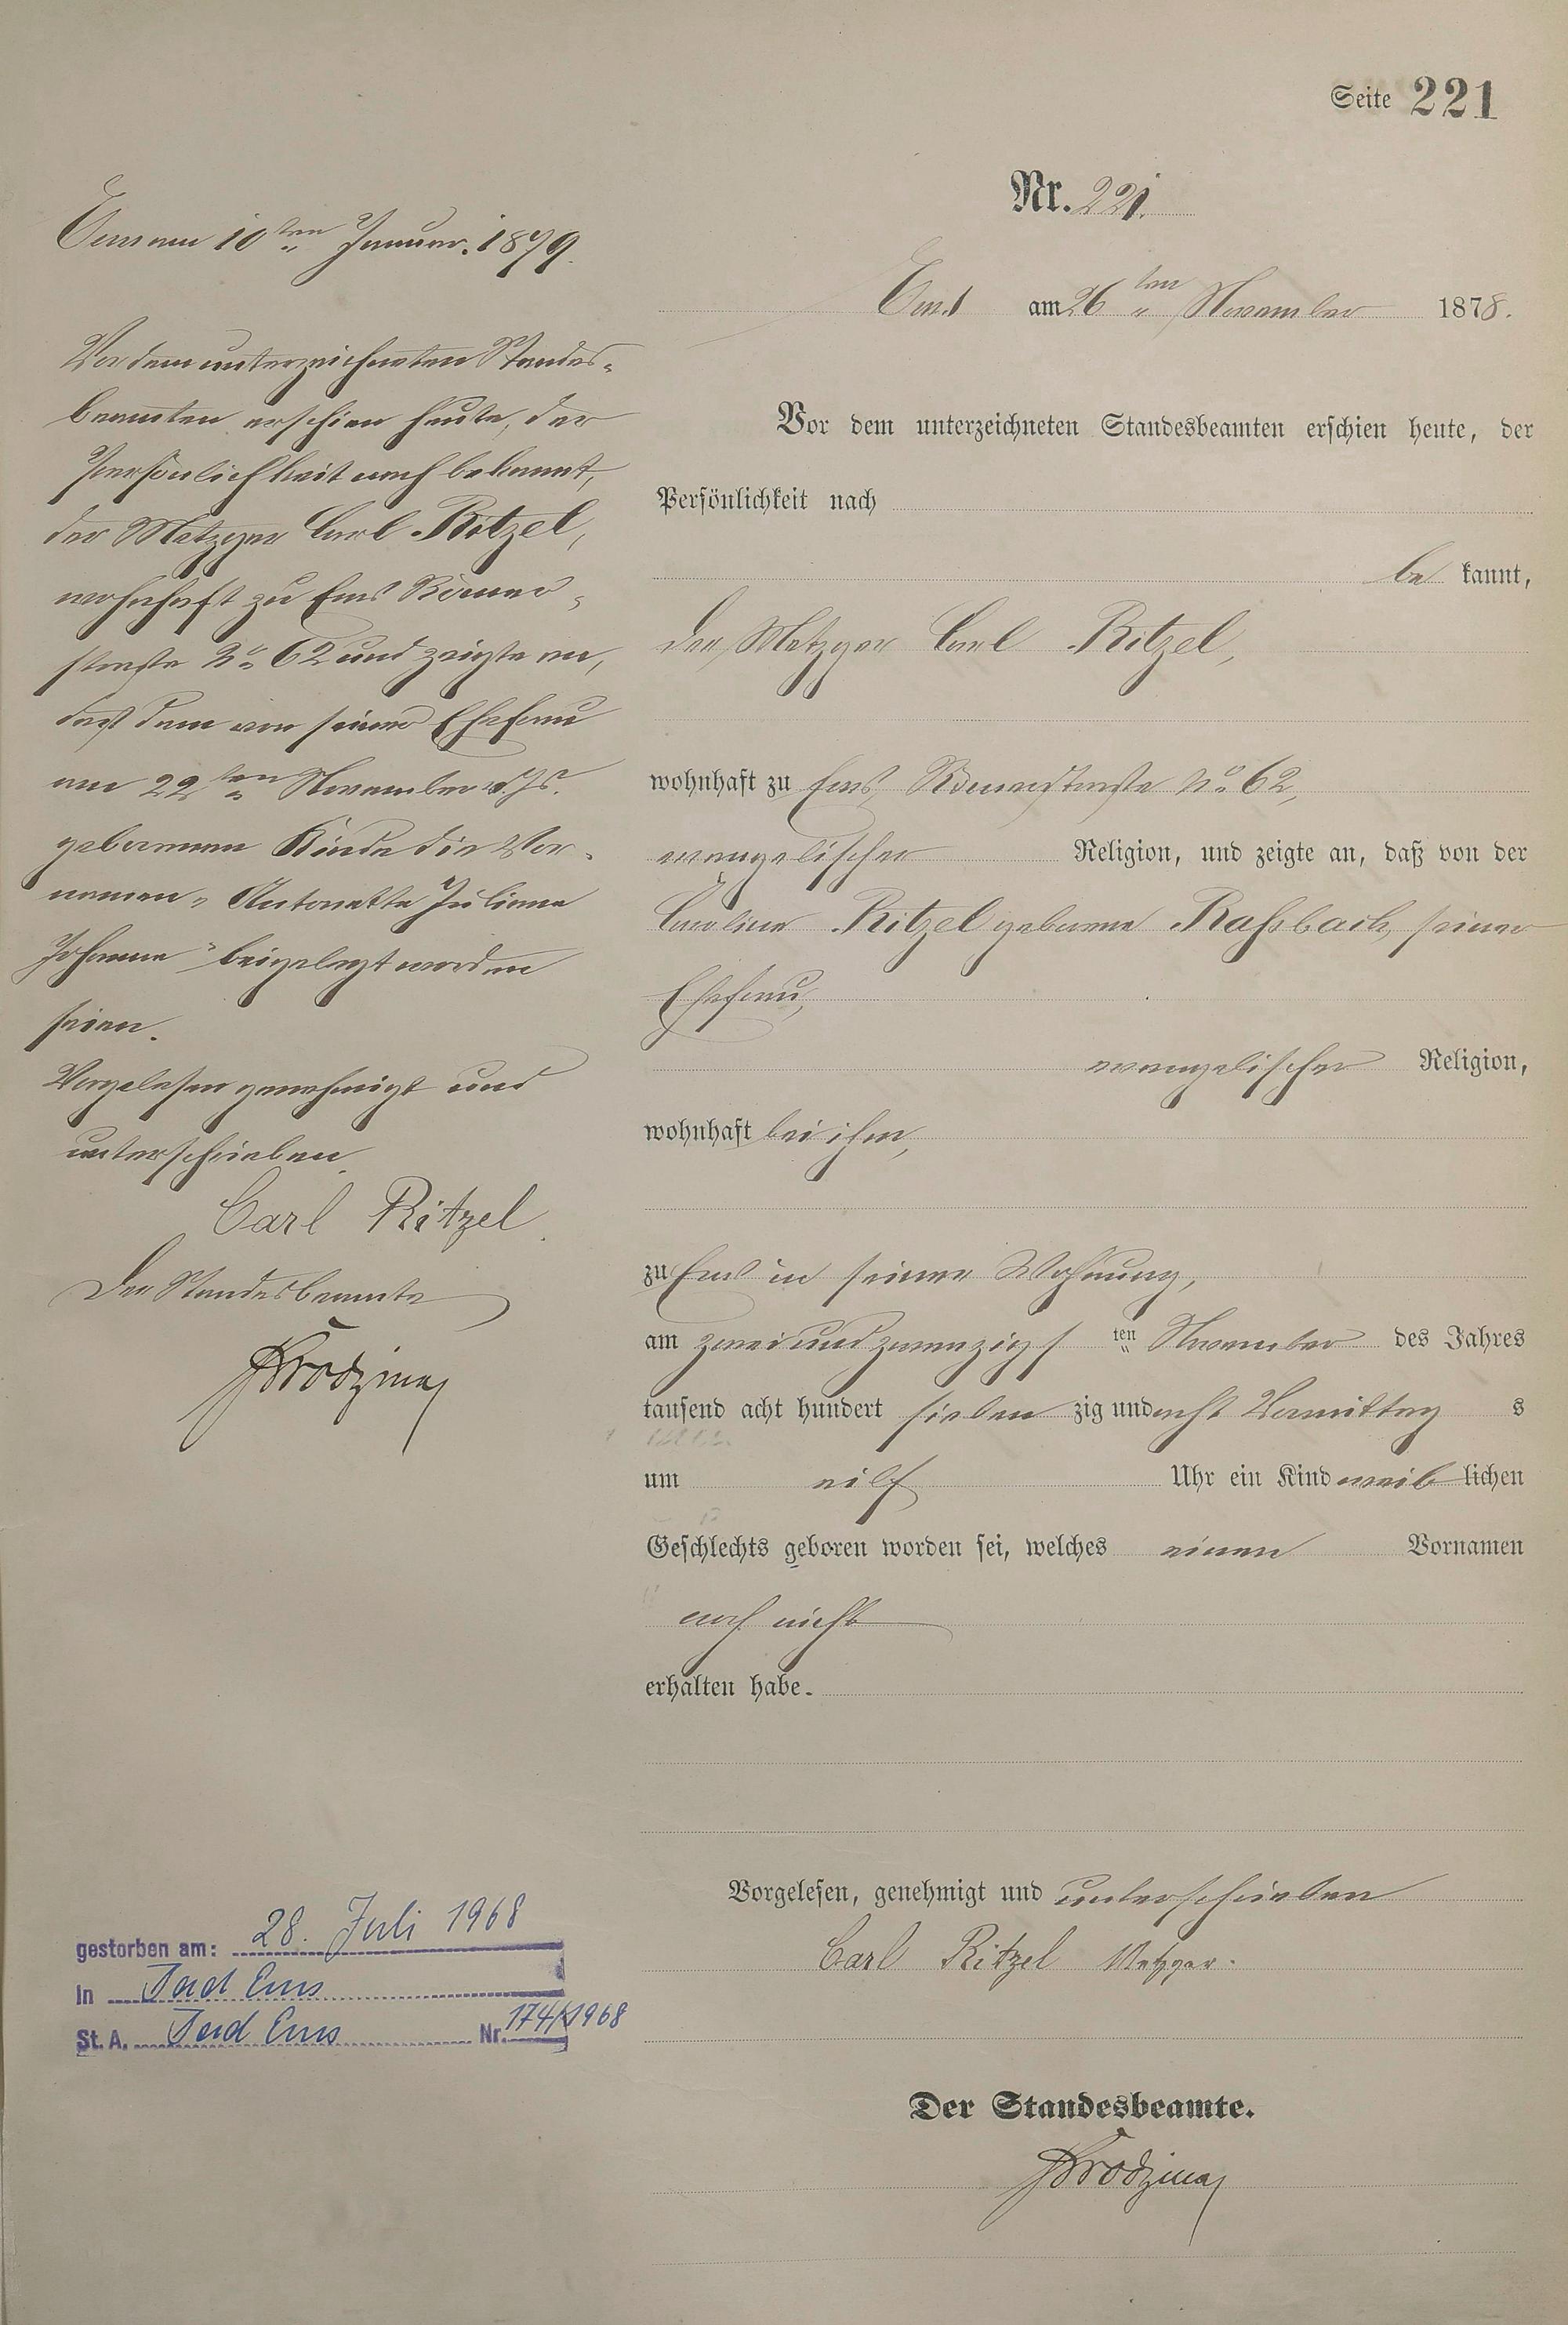 Seite 221
Nr. 221.
Ems am 26ten November 1878.
Vor dem unterzeichneten Standesbeamten erschien heute, der
Persönlichkeit nach
be kannt,
der Metzger Carl Ritzel,
wohnhaft zu Ems, Römerstraße No 62,
evangelischer Religion, und zeigte an, daß von der
Caroline Ritzel geborene Raßbach, seiner
Ehefrau,
evangelischer Religion,
wohnhaft bei ihm,
zu Ems in seiner Wohnung,
am zweiundzwanzigsten November des Jahres
tausend acht hundert sieben zig und acht Vormittags
um eilf Uhr ein Kind weiblichen
Geschlechts geboren worden sei, welches einen Vornamen
noch nicht
erhalten habe.
Vorgelesen, genehmigt und unterschrieben
Carl Ritzel Metzger.
Der Standesbeamte.
Ems am 10ten Januar. 1879.
Vor dem unterzeichneten Standes-
beamten erschien heute, der
Persönlichkeit nach bekannt,
der Metzger Carl Ritzel,
wohnhaft zu Ems Römer-
straße No 62 und zeigte an,
daß dem von seiner Ehefrau
am 22ten November v. Js.
geborenen Kinde die Vor-
namen „Antonette Juliane
Johanna" beigelegt worden
seien.
Vorgelesen genehmigt und
unterschrieben.
Carl Ritzel.
Der Standesbeamte
gestorben am: 28. Juli 1968
in Bad Ems
St. A. Bad Ems Nr. 174/1968